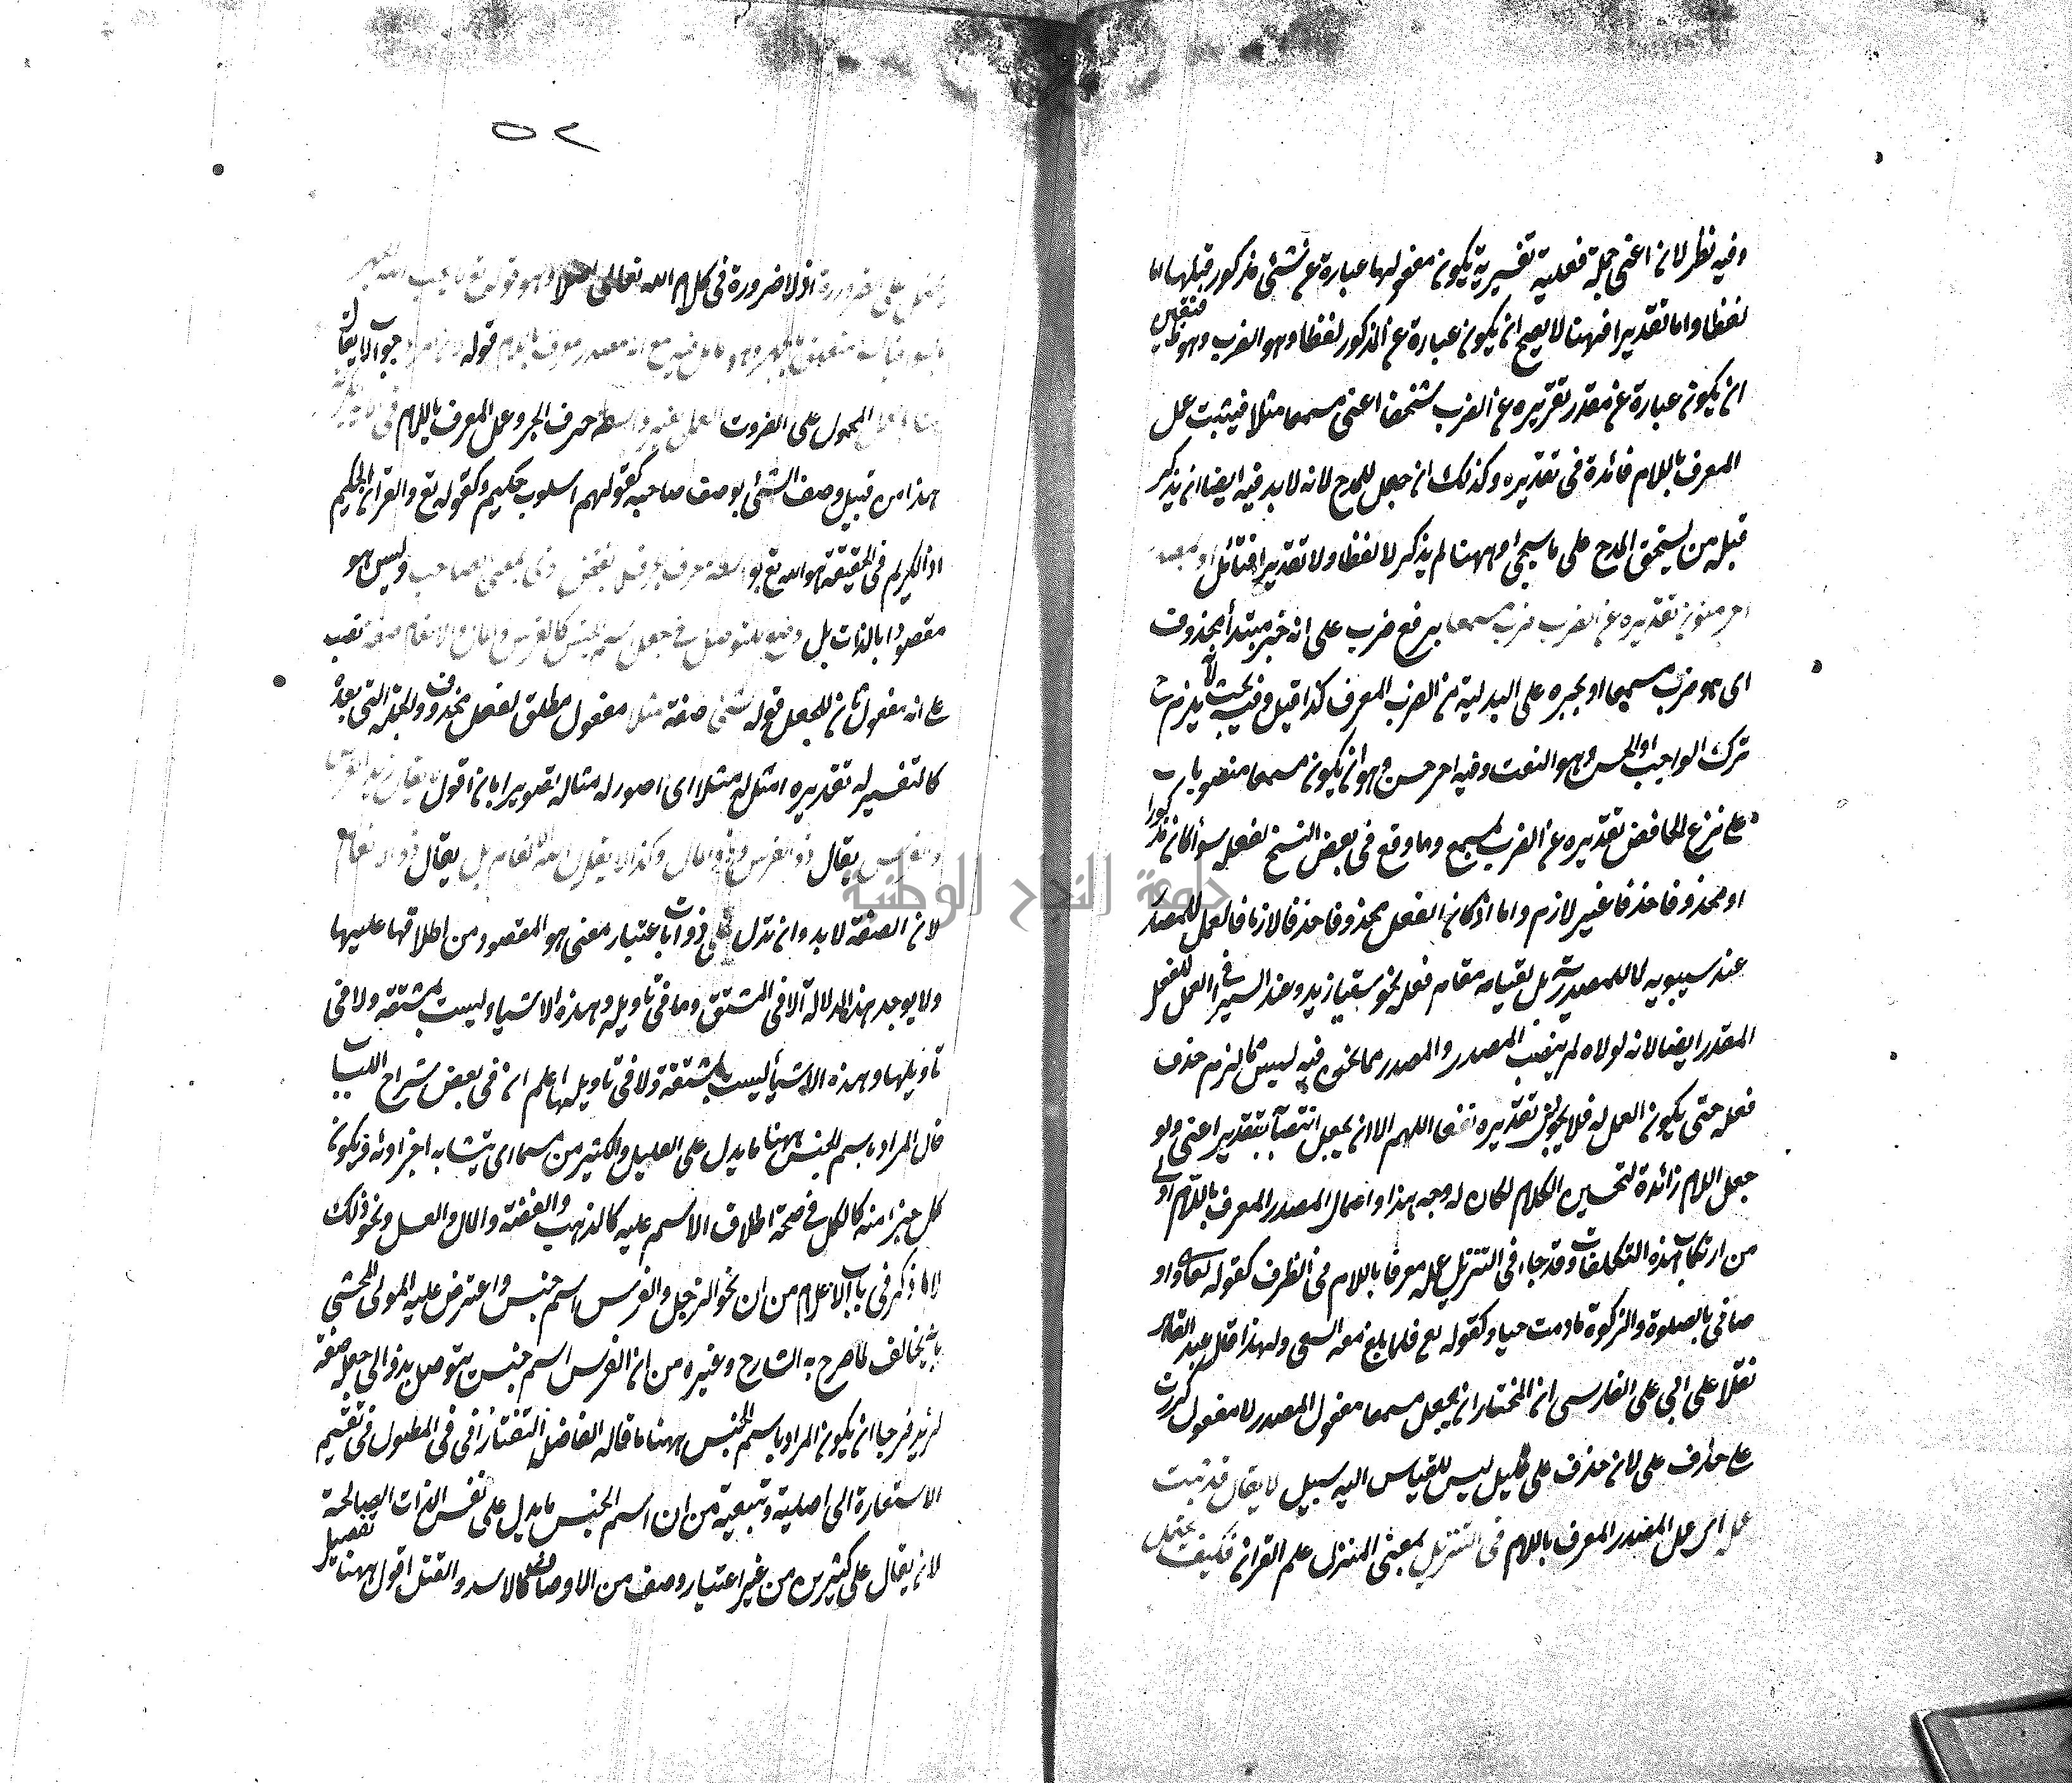 وفيه نظر لان اعنى جملة فعلية تفسيرية يكون مفعولها عبارة عن شئ مذكور قبلها اما
لفظا واما تقديرا فههنا لا يصح ان يكون عبارة عن المذكور لفظا وهو الضرب وهو
ان يكون عبارة عن مقدر تقريره عن الضرب شخصا اعنى مسمعا مثلا فيثبت عمل
المعرف باللام فائدة فى تقديره وكذلك ان جعل للمدح لانه لا بد فيه ايضا ان يذكر
قبله من يستحق المدح على ما سيجئ وههنا لم يذكر لا لفظا ولا تقديرا فتأمل او بمصدر
اخر منون تقديره عن الضرب ضرب مسمعا برفع ضرب على انه خبر مبتدأ محذوف
اى هو ضرب مسمعا او بجره على البدلية من الضرب المعرف كذا قيل وفيه بحث لانه يلزم
ترك الواجب او الحسن وهو النعت وفيه امر حسن وهو ان يكون مسمعا منصوبا
على نزع الخافض تقديره عن الضرب بمسمع وما وقع فى بعض النسخ لفعله سواء كان مذكورا
او محذوفا حذفا غير لازم واما اذا كان الفعل محذوفا حذفا لازما فالعمل للمصدر
عند سيبويه لا للمصدرية بل لقيامه مقام فعله نحو سقيا زيد وعند السيرافى العمل للفعل
المقدر ايضا لانه لولاه لم ينتصب المصدر والمصدر مما نحن فيه ليس مما لزم حذف
فعله حتى يكون العمل له فلا يجوز تقديره اللهم الا ان يجعل انتصابه بتقدير اعنى ولو
جعل اللام زائدة لتحسين الكلام لكان له وجه هذا واعمال المصدر المعرف باللام اولى
من ارتكاب هذه التكلفات وقد جاء فى التنزيل عمله معرفا باللام فى الظرف كقوله تعالى واو
صانى بالصلوة والزكوة ما دمت حيا وكقوله تع فلما بلغ معه السعى ولهذا قال عبد القاهر
نقلا على ابى على الفارسى ان المختار ان يجعل مسمعا مفعول المصدر لا مفعول كررت
على حذف على لان حذف على قليل ليس للقياس اليه سبيل لا يقال قد ثبت
عمله اى عمل المصدر المعرف باللام فى التنزيل بمعنى المنزل علم القران فكيف يحتمل
٥٢
على الضرورة اذ لا ضرورة فى كلام الله تعالى اصلا وهو قوله تع لا يحب الله الجهر
بالسوء مع انه مصدر معرف باللام قوله جوابا لا يقال
المحمول على الضرورت العمل بغير واسطة حرف الجر وعمل المعرف باللام فى
هذا من قبيل وصف الشئ بوصف صاحبه كقولهم اسلوب حكيم وكقوله تع والقران الحكيم
اذ الكريم فى الحقيقة هو الله تع ذى بمعنى صاحب وليس هو
مقصودا بالذات بل وضع للتوصل فى جعل اسم الجنس كالفرس والمال والانعام صفة نصب
على انه مفعول ثان للجعل قوله شئ صفة مثلا مفعول مطلق لفعل محذوف والجملة التى بعده
كالتفسير له تقديره امثل له مثلا اى اصور له مثاله تصويرا بان اقول لا يقال زيد الفرس
يقال ذو الفرس وذو المال وكذا لا يقال انعام بل يقال ذو انعام
لان الصفة لا بد وان تدل على ذوات باعتبار معنى هو المقصود من اطلاقها عليها
ولا يوجد هذا الدلالة الا فى المشتق وما فى تأويله وهذه الاشياء ليست بمشتقة ولا فى
تأويلها وهذه الاشيأ ليست بمشتقة ولا فى تاويلها اعلم ان فى بعض شراح اللباب
قال المراد باسم الجنس ههنا ما يدل على القليل والكثير من مسماه اى يتشابه اجزاوئه فيكون
كل جزء منه كالكل فى صحة اطلاق الاسم عليه كالذهب والفضة والمال والعسل ونحو ذلك
لا ما ذكر فى باب الاعلام من ان نحو الرجل والفرس اسم جنس واعترض عليه المولى المحشى
بانه يخالف لما صرح به الشارح وغيره من ان الفرس اسم جنس يتوصل بذو الى جعله صفة
لزيد فرجا ان يكون المراد باسم الجنس ههنا ما قاله الفاضل التفتازانى فى المطول فى تقسيم
الاستعارة الى اصلية وتبعية من ان اسم الجنس ما يدل على نفس الذات الصالحة
لان يقال على كثيرين من غير اعتبار وصف من الاوصاف كالاسد والقتل اقول ههنا تفصيل
جامعة النجاح الوطنية